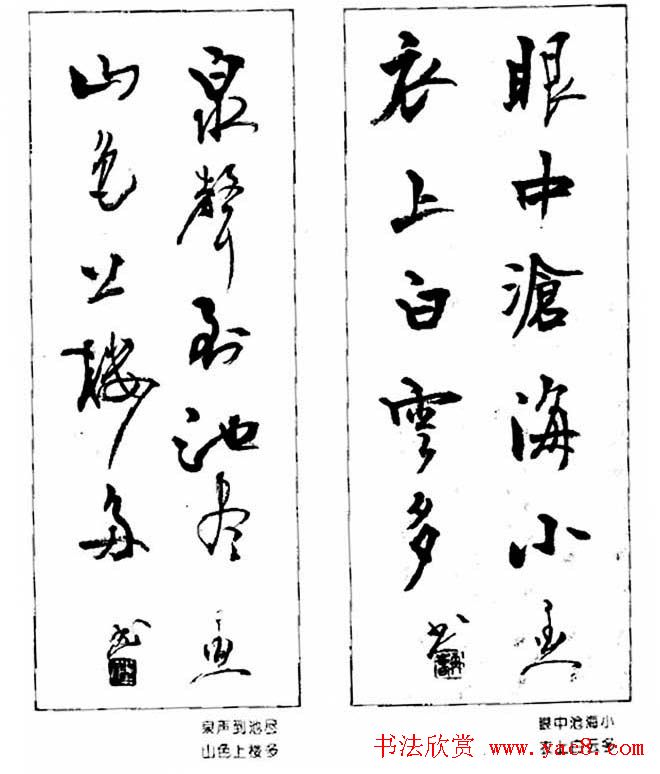 眼中滄海小
衣上白雲多
泉聲到池尽
山色上樓多
眼中沧海小
衣上白云多
泉声到池尽
山色上楼多
书法欣赏 www.yac8.com